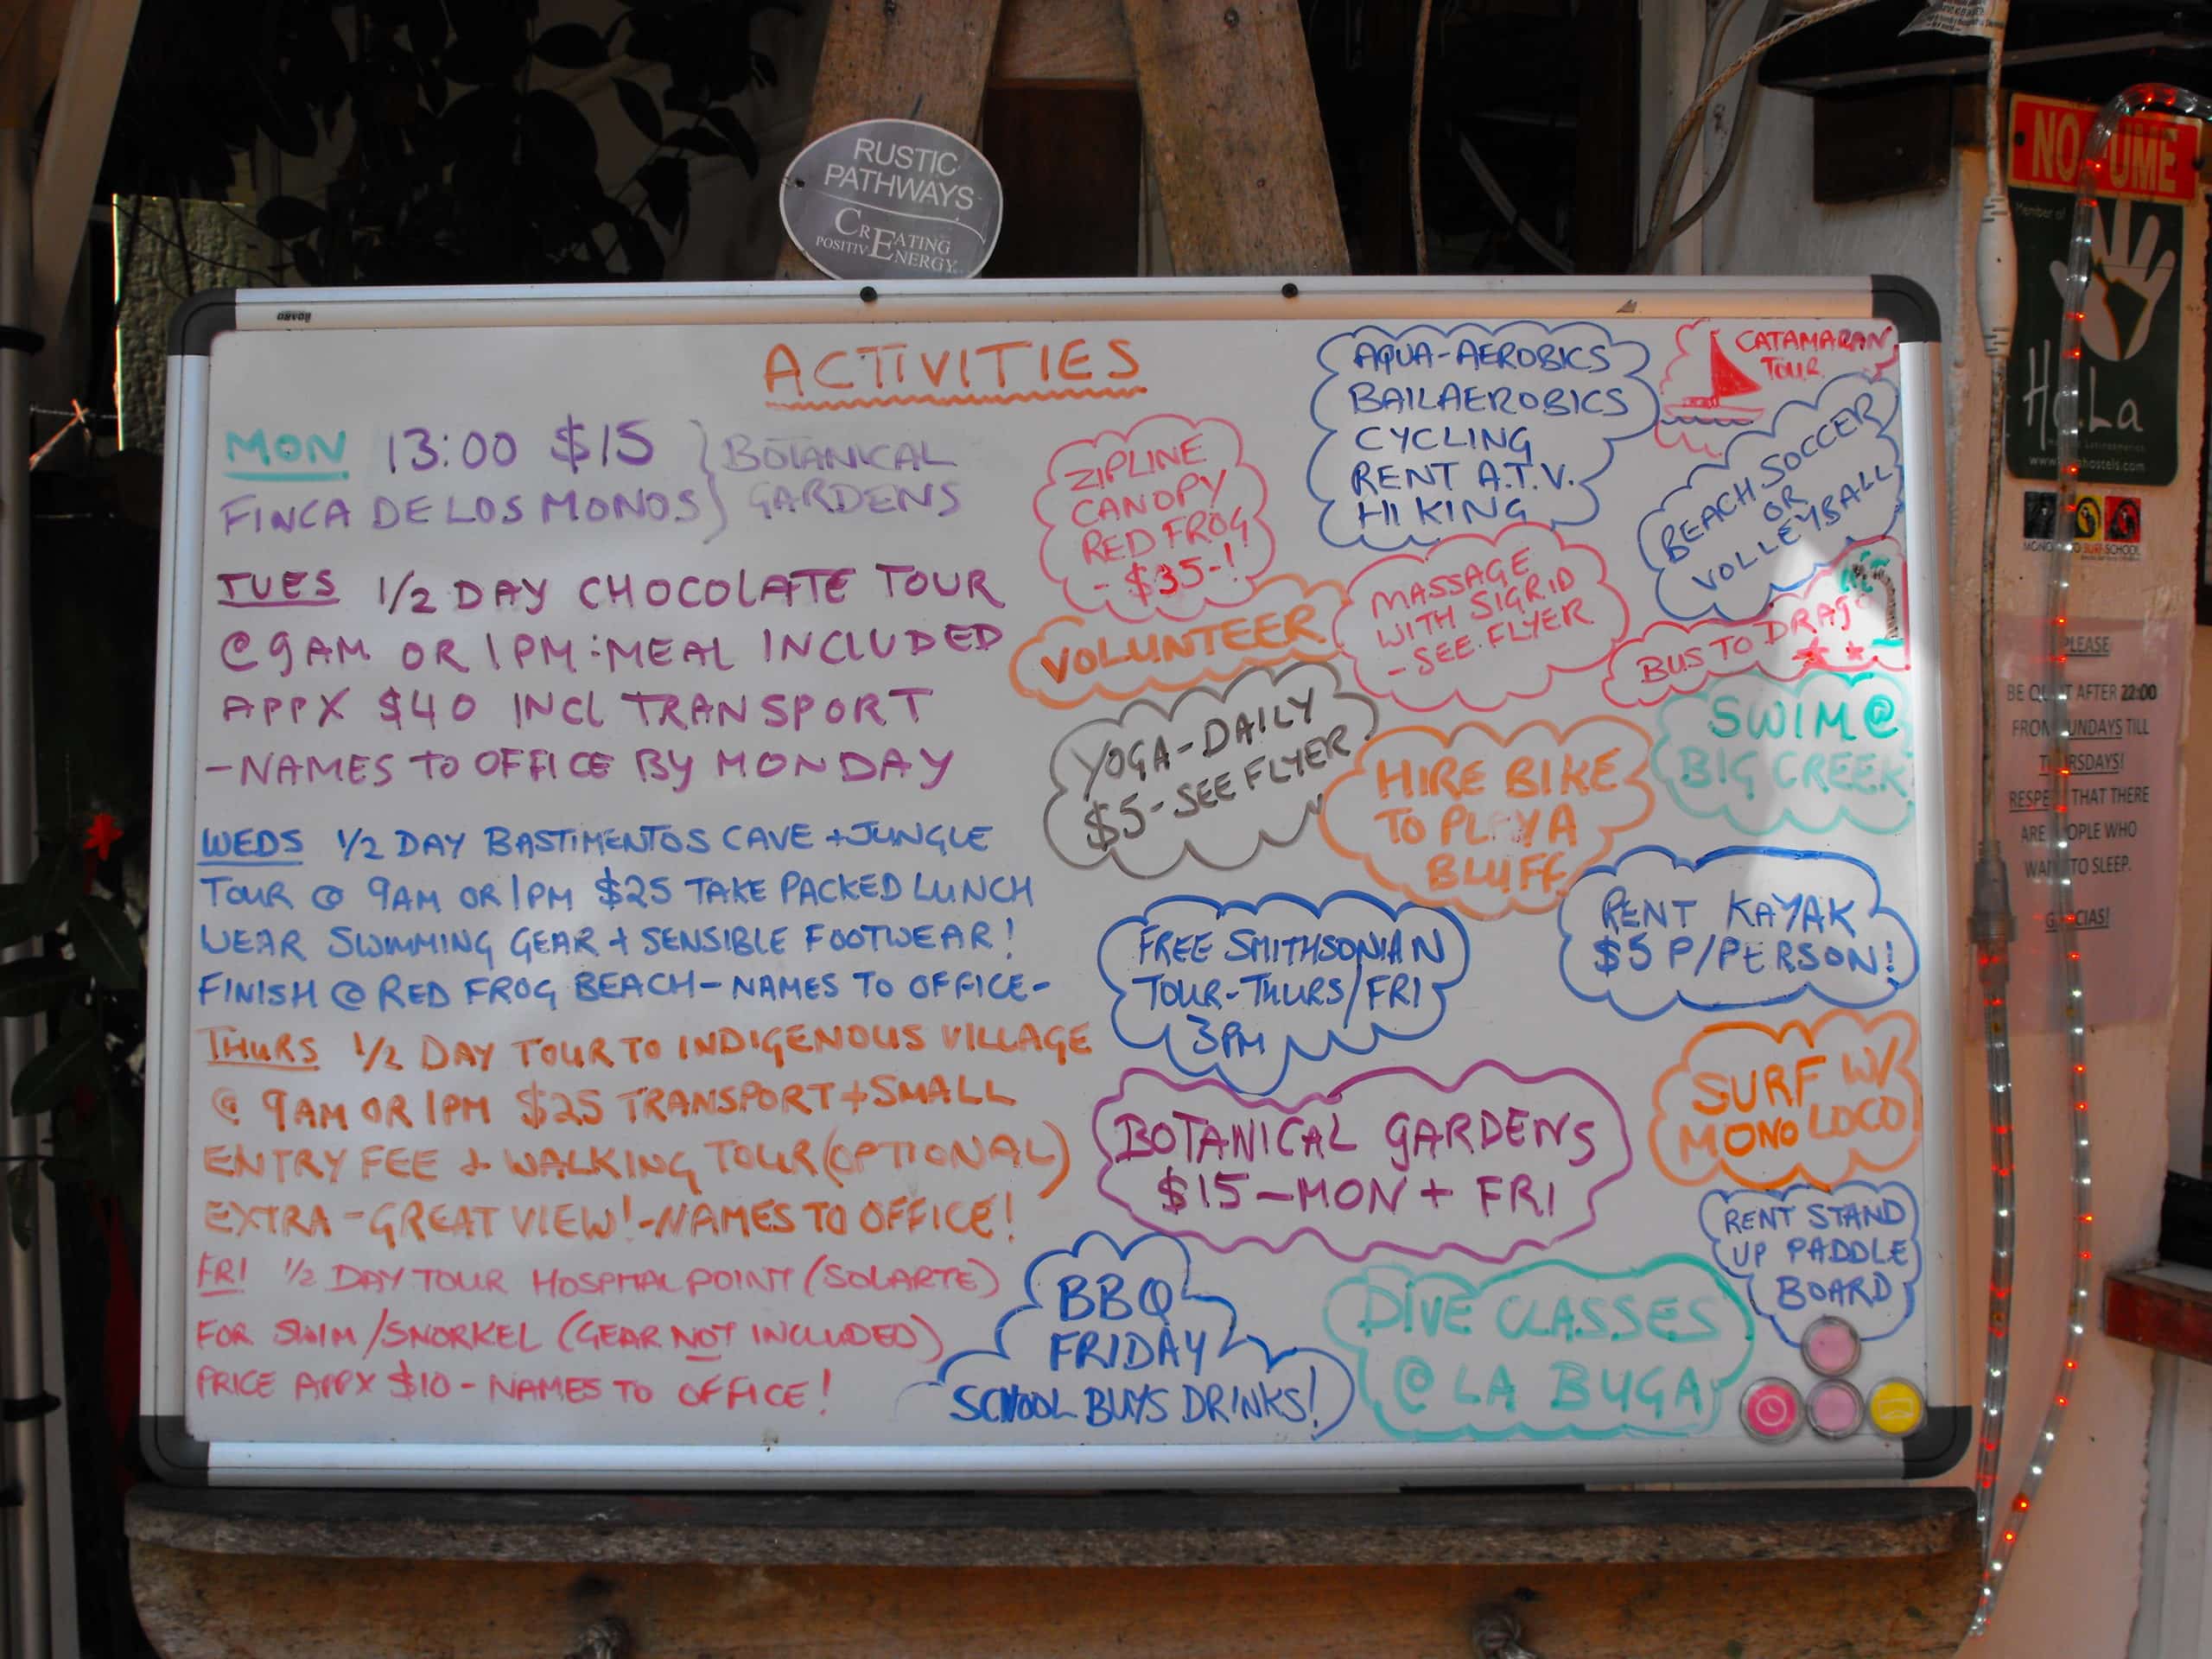 RUSTIC
PATHWAYS
CREATING
POSITIVE ENERGY
ACTIVITIES
MON 13:00 $15 } BOTANICAL
FINCA DE LOS MONOS } GARDENS
TUES 1/2 DAY CHOCOLATE TOUR
@ 9AM OR 1PM : MEAL INCLUDED
APPX $40 INCL TRANSPORT
-NAMES TO OFFICE BY MONDAY
WEDS 1/2 DAY BASTIMENTOS CAVE + JUNGLE
TOUR @ 9AM OR 1PM $25 TAKE PACKED LUNCH
WEAR SWIMMING GEAR + SENSIBLE FOOTWEAR!
FINISH @ RED FROG BEACH - NAMES TO OFFICE -
THURS 1/2 DAY TOUR TO INDIGENOUS VILLAGE
@ 9AM OR 1PM $25 TRANSPORT + SMALL
ENTRY FEE + WALKING TOUR (OPTIONAL)
EXTRA - GREAT VIEW! - NAMES TO OFFICE!
FRI 1/2 DAY TOUR HOSPITAL POINT (SOLARTE)
FOR SWIM/SNORKEL (GEAR NOT INCLUDED)
PRICE APPX $10 - NAMES TO OFFICE!
ZIPLINE
CANOPY
RED FROG
- $35 - !
AQUA-AEROBICS
BAILAEROBICS
CYCLING
RENT A.T.V.
HIKING
CATAMARAN
TOUR
BEACH SOCCER
OR
VOLLEYBALL
VOLUNTEER
MASSAGE
WITH SIGRID
- SEE FLYER
BUS TO DRAGO
YOGA - DAILY
$5 - SEE FLYER
HIRE BIKE
TO PLAYA
BLUFF
SWIM @
BIG CREEK
FREE SMITHSONIAN
TOUR - THURS/FRI
3PM
RENT KAYAK
$5 P/PERSON!
BOTANICAL GARDENS
$15 - MON + FRI
SURF W/
MONO LOCO
RENT STAND
UP PADDLE
BOARD
BBQ
FRIDAY
SCHOOL BUYS DRINKS!
DIVE CLASSES
@ LA BUGA
NO FUME
Member of
HoLa
PLEASE
BE QUIET AFTER 22:00
FROM SUNDAYS TILL
THURSDAYS!
RESPECT THAT THERE
ARE PEOPLE WHO
WANT TO SLEEP.
GRACIAS!